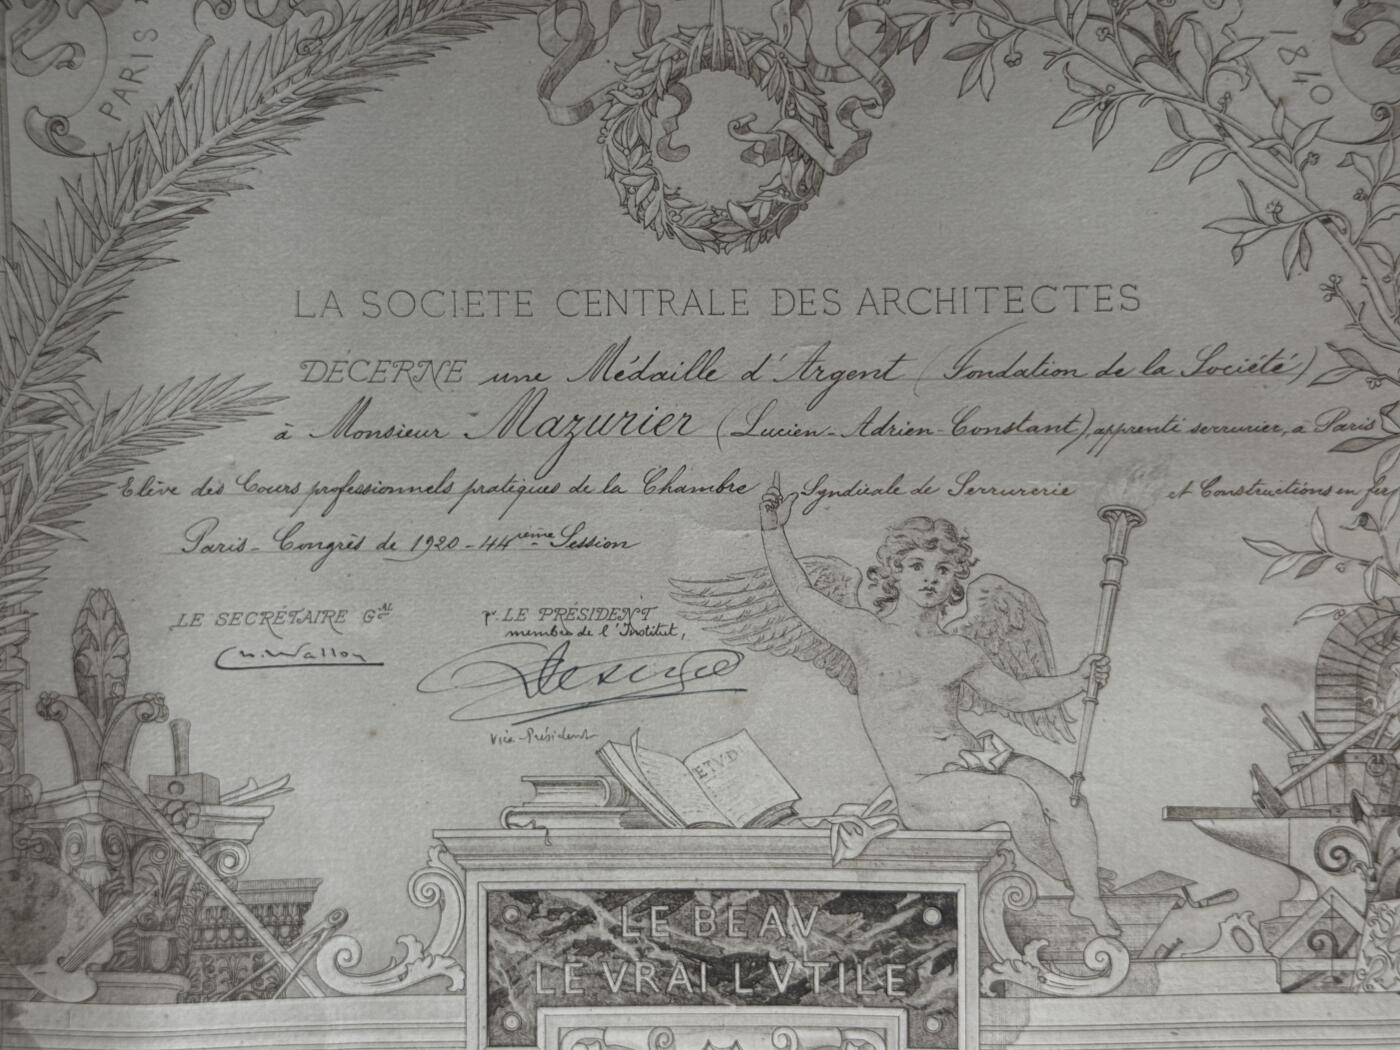 PARIS
1840
LA SOCIETE CENTRALE DES ARCHITECTES
DÉCERNE une Médaille d'Argent (Fondation de la Société)
à Monsieur Mazurier (Lucien-Adrien-Constant), apprenti serrurier, à Paris
Elève des Cours professionnels pratiques de la Chambre Syndicale de Serrurerie et Constructions en fer
Paris - Congrès de 1920 - 44ième Session
LE SECRÉTAIRE Gal
pr. LE PRÉSIDENT
membre de l'Institut,
Vice-Président
ETVD
LE BEAV
LE VRAI L'VTILE